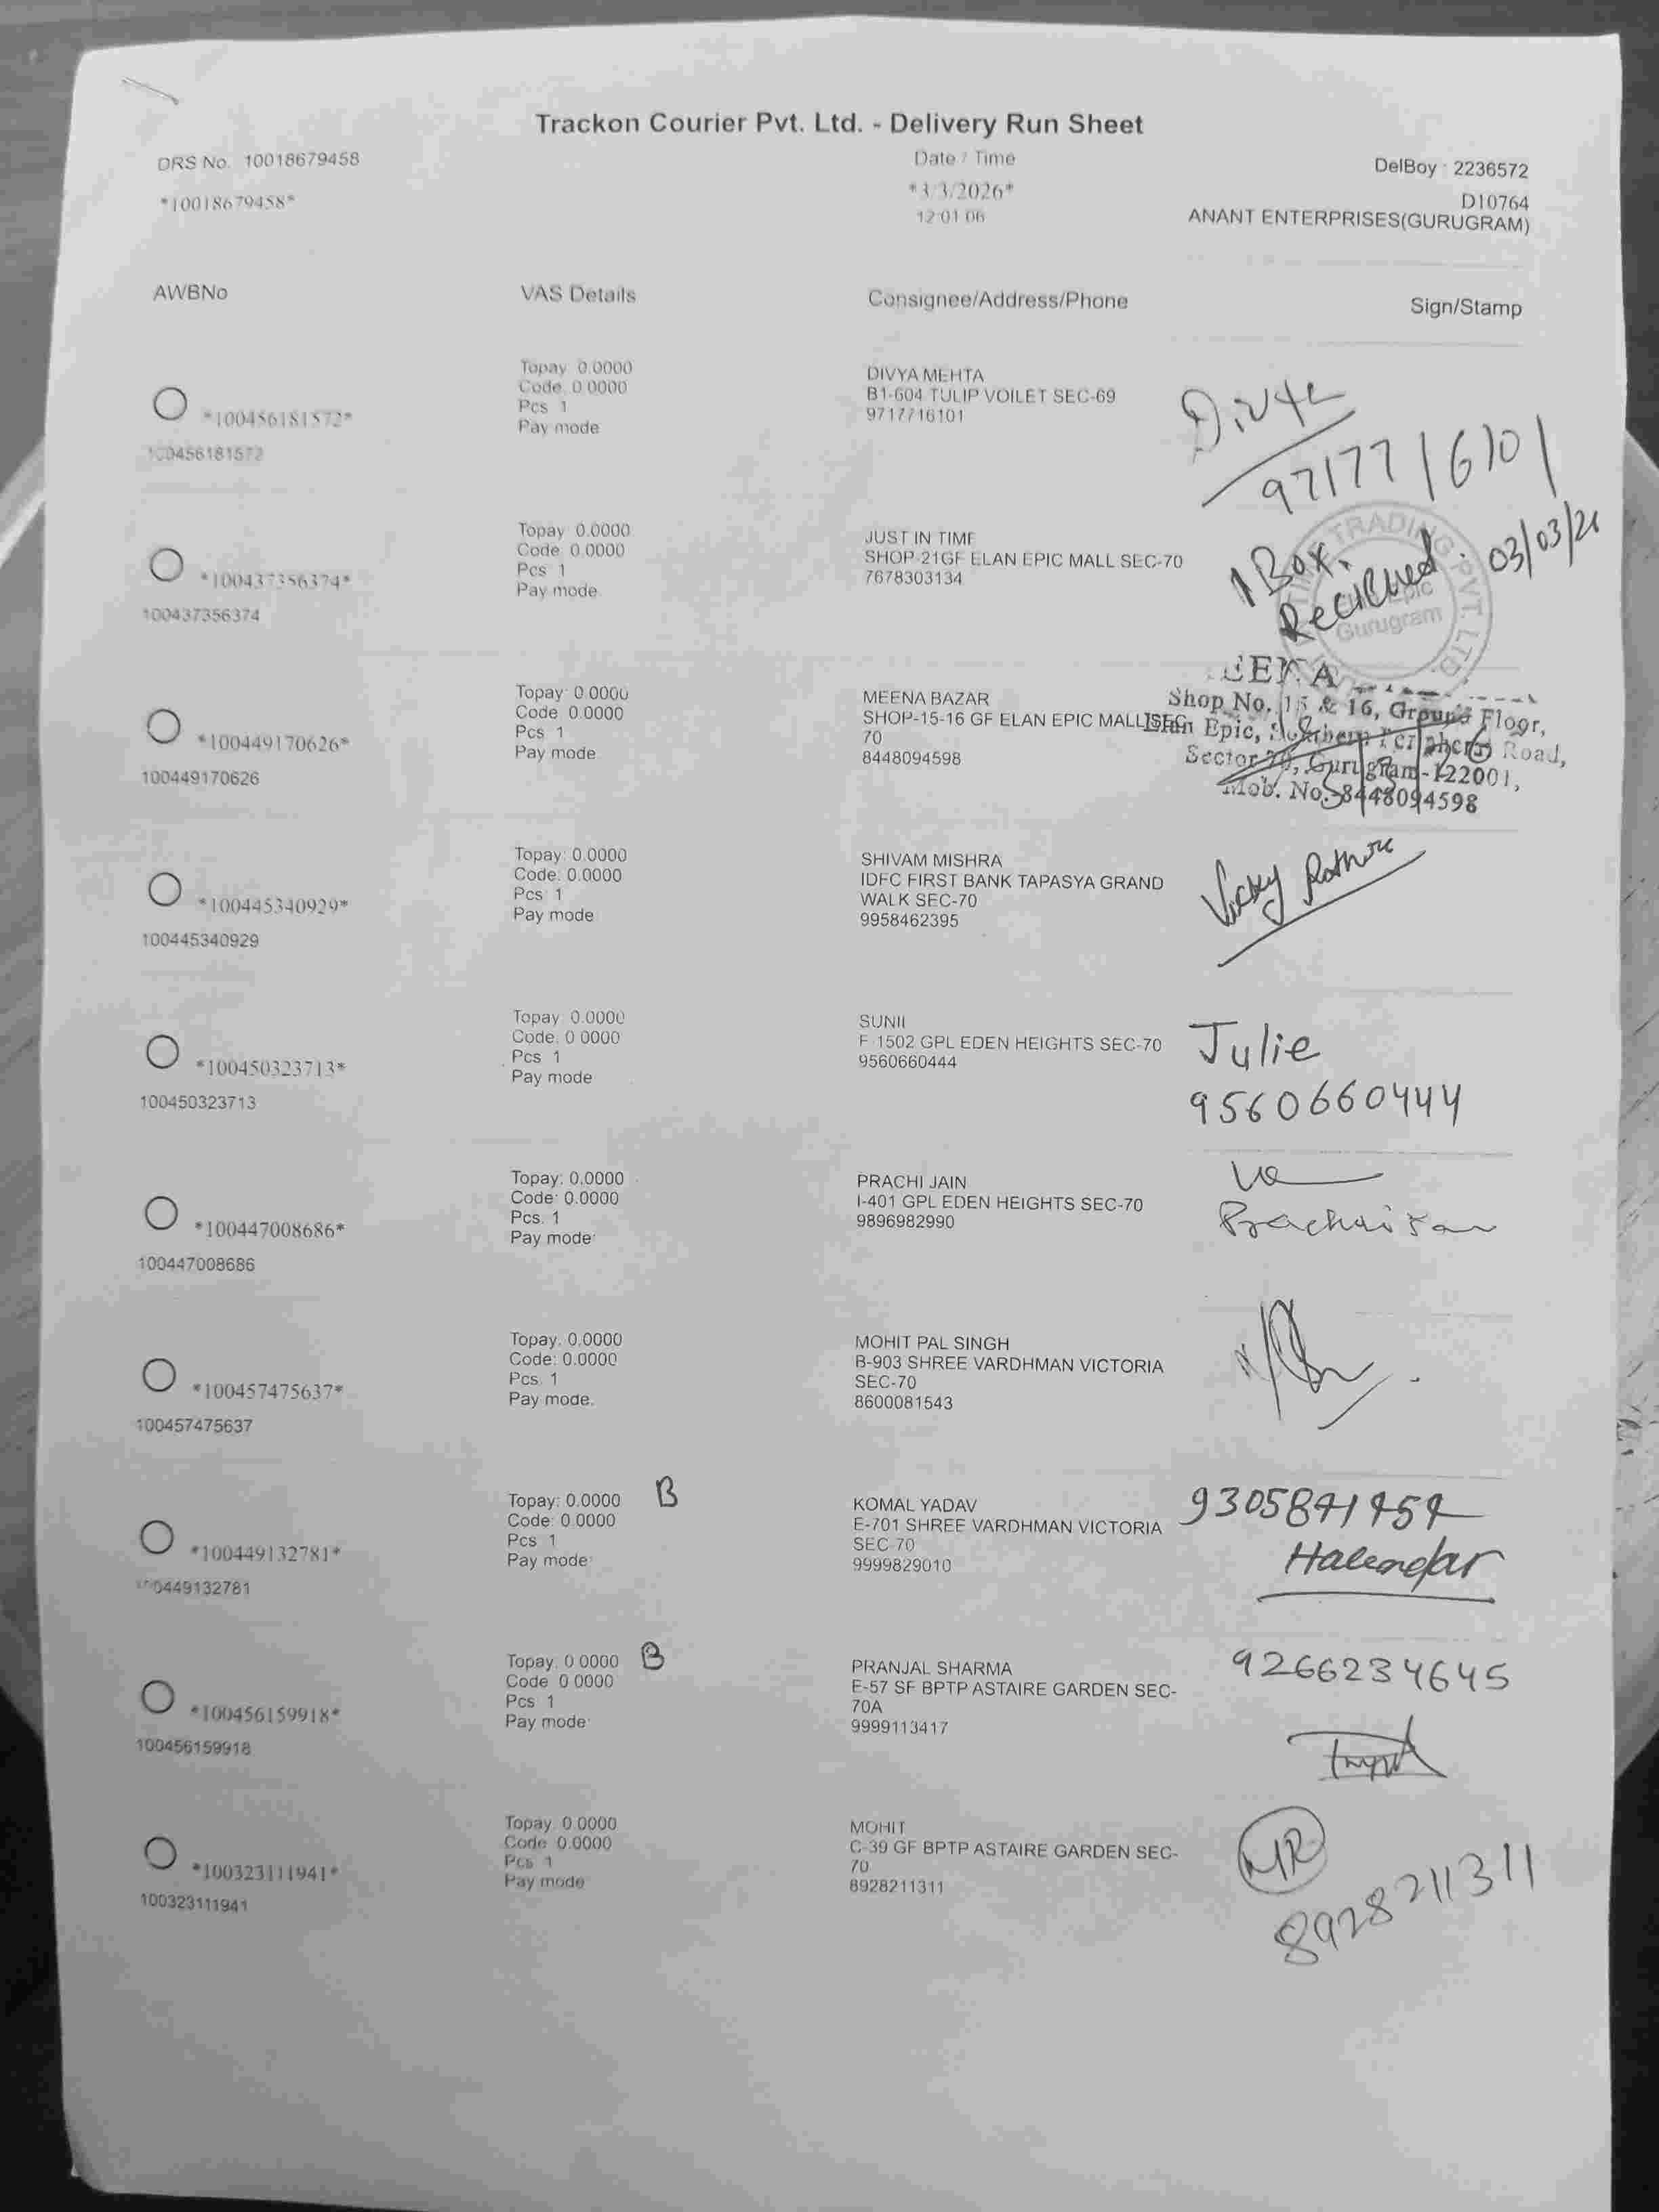 Trackon Courier Pvt. Ltd. - Delivery Run Sheet
DRS No. 10018679458
Date / Time
DelBoy : 2236572
*10018679458*
*3/3/2026*
D10764
12:01:06
ANANT ENTERPRISES(GURUGRAM)
AWBNo
VAS Details
Consignee/Address/Phone
Sign/Stamp
*100456181572*
100456181572
Topay: 0.0000
Code: 0.0000
Pcs 1
Pay mode
DIVYA MEHTA
B1-604 TULIP VOILET SEC-69
9717716101
9717716101
*100437356374*
100437356374
Topay: 0.0000
Code: 0.0000
Pcs 1
Pay mode
JUST IN TIME
SHOP-21GF ELAN EPIC MALL SEC-70
7678303134
1 Box.
Recieved. 03/03/26
TRADING PVT. LTD.
Epic
Gurugram
*100449170626*
100449170626
Topay: 0.0000
Code: 0.0000
Pcs 1
Pay mode
MEENA BAZAR
SHOP-15-16 GF ELAN EPIC MALL SEC-
70
8448094598
Shop No. 15 & 16, Ground Floor,
Elan Epic, Southern Peripheral Road,
Sector 70, Gurugram-122001,
Mob. No. 8448094598
*100445340929*
100445340929
Topay: 0.0000
Code: 0.0000
Pcs 1
Pay mode
SHIVAM MISHRA
IDFC FIRST BANK TAPASYA GRAND
WALK SEC-70
9958462395
Vicky Rathore
*100450323713*
100450323713
Topay: 0.0000
Code: 0.0000
Pcs 1
Pay mode
SUNIL
F-1502 GPL EDEN HEIGHTS SEC-70
9560660444
Julie
9560660444
*100447008686*
100447008686
Topay: 0.0000
Code: 0.0000
Pcs. 1
Pay mode:
PRACHI JAIN
I-401 GPL EDEN HEIGHTS SEC-70
9896982990
*100457475637*
100457475637
Topay: 0.0000
Code: 0.0000
Pcs. 1
Pay mode.
MOHIT PAL SINGH
B-903 SHREE VARDHMAN VICTORIA
SEC-70
8600081543
*100449132781*
100449132781
Topay: 0.0000
Code: 0.0000
Pcs 1
Pay mode:
B
KOMAL YADAV
E-701 SHREE VARDHMAN VICTORIA
SEC-70
9999829010
*100456159918*
100456159918
Topay: 0.0000
Code 0.0000
Pcs 1
Pay mode:
B
PRANJAL SHARMA
E-57 SF BPTP ASTAIRE GARDEN SEC-
70A
9999113417
9266234645
*100323111941*
100323111941
Topay: 0.0000
Code: 0.0000
Pcs 1
Pay mode
MOHIT
C-39 GF BPTP ASTAIRE GARDEN SEC-
70
8928211311
MR
8928211311